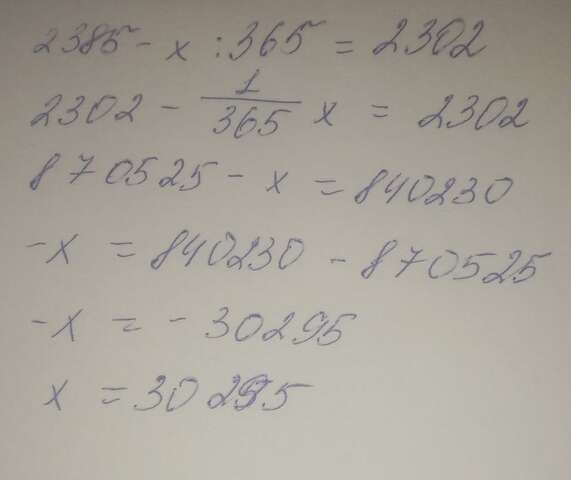 2385 - x : 365 = 2302
2302 - 1/365 x = 2302
870525 - x = 840230
-x = 840230 - 870525
-x = - 30295
x = 30295